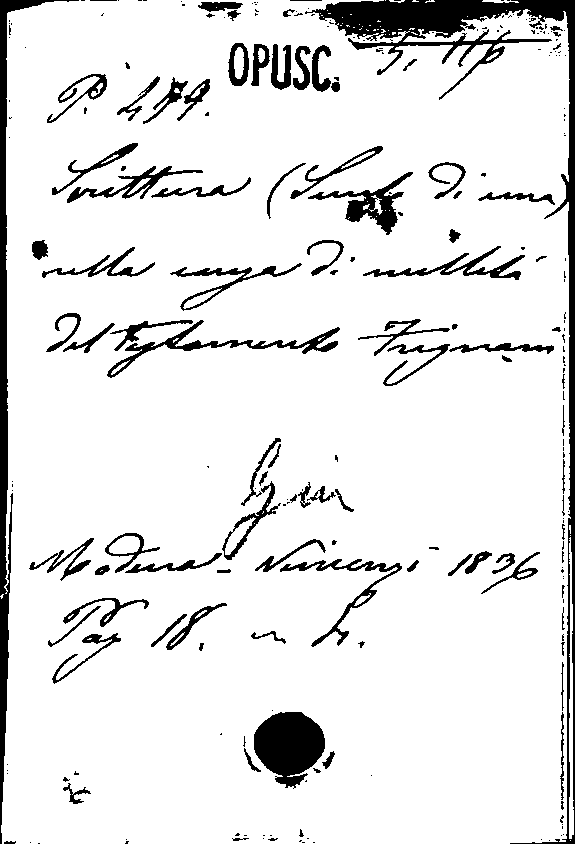 OPUSC. 5, 116
P. 479.
Scrittura (Sunto di una)
nella causa di nullità
del Testamento Frignani
Giu
Modena - Vincenzi 1836
Pag 18. in 4.